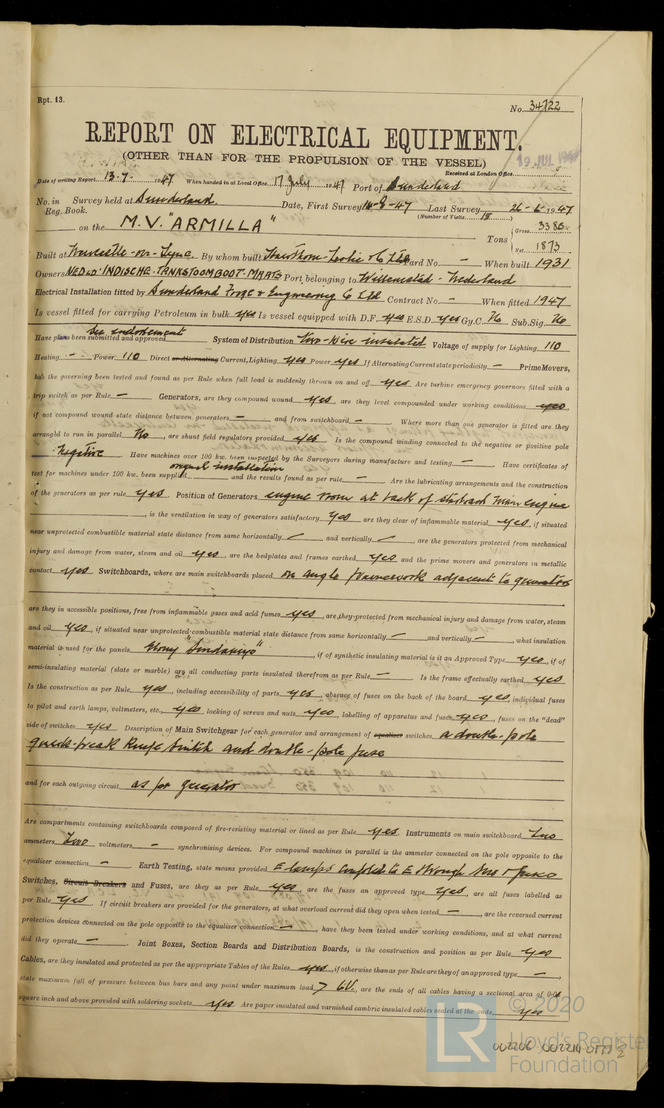 Rpt. 13.
No. 34722
REPORT ON ELECTRICAL EQUIPMENT.
(OTHER THAN FOR THE PROPULSION OF THE VESSEL)
19 JUL 1947
Date of writing Report 13.7. 1947 When handed in at Local Office 17 July 1947 Port of Sunderland Received at London Office
No. in Survey held at Sunderland Date, First Survey Last Survey 26-6-1947
Reg. Book. (Number of Visits 18)
on the M.V. "ARMILLA" Tons { Gross 3386
Net 1873
Built at Newcastle-on-Tyne By whom built Hawthorn-Leslie & Co Ltd Yard No. - When built 1931
Owners NED. INDISCHE-TANKSTOOMBOOT-MAATS Port belonging to Willemstad - Nederland
Electrical Installation fitted by Sunderland Forge & Engineering Co Ltd Contract No. - When fitted 1947
Is vessel fitted for carrying Petroleum in bulk yes Is vessel equipped with D.F. yes E.S.D. yes Gy.C. No Sub.Sig. No
Have plans been submitted and approved See endorsement System of Distribution Two-Wire insulated Voltage of supply for Lighting 110
Heating - Power 110 Direct or Alternating Current, Lighting yes Power yes If Alternating Current state periodicity - Prime Movers,
has the governing been tested and found as per Rule when full load is suddenly thrown on and off yes Are turbine emergency governors fitted with a
trip switch as per Rule - Generators, are they compound wound yes, are they level compounded under working conditions yes,
if not compound wound state distance between generators - and from switchboard - Where more than one generator is fitted are they
arranged to run in parallel No, are shunt field regulators provided yes Is the compound winding connected to the negative or positive pole
Negative Have machines over 100 kw. been inspected by the Surveyors during manufacture and testing - Have certificates of
test for machines under 100 kw. been supplied original installation and the results found as per rule - Are the lubricating arrangements and the construction
of the generators as per rule yes Position of Generators engine room at back of starboard main engine
, is the ventilation in way of generators satisfactory yes are they clear of inflammable material yes, if situated
near unprotected combustible material state distance from same horizontally - and vertically -, are the generators protected from mechanical
injury and damage from water, steam and oil yes, are the bedplates and frames earthed yes and the prime movers and generators in metallic
contact yes Switchboards, where are main switchboards placed on angle framework adjacent to generators
are they in accessible positions, free from inflammable gases and acid fumes yes, are they protected from mechanical injury and damage from water, steam
and oil yes, if situated near unprotected combustible material state distance from same horizontally - and vertically -, what insulation
material is used for the panels Ebony "Sindanyo", if of synthetic insulating material is it an Approved Type yes, if of
semi-insulating material (slate or marble) are all conducting parts insulated therefrom as per Rule - Is the frame effectually earthed yes
Is the construction as per Rule yes, including accessibility of parts yes, absence of fuses on the back of the board yes, individual fuses
to pilot and earth lamps, voltmeters, etc. yes locking of screws and nuts yes, labelling of apparatus and fuses yes, fuses on the "dead"
side of switches yes Description of Main Switchgear for each generator and arrangement of equaliser switches a double-pole
quick-break knife switch and double-pole fuse
and for each outgoing circuit as for generator
Are compartments containing switchboards composed of fire-resisting material or lined as per Rule yes Instruments on main switchboard Two
ammeters Two voltmeters - synchronising devices. For compound machines in parallel is the ammeter connected to the pole opposite to the
equaliser connection - Earth Testing, state means provided E lamps coupled to E through and fuses
Switches, Circuit Breakers and Fuses, are they as per Rule yes, are the fuses an approved type yes, are all fuses labelled as
per Rule yes If circuit breakers are provided for the generators, at what overload current did they open when tested -, are the reversed current
protection devices connected on the pole opposite to the equaliser connection -, have they been tested under working conditions, and at what current
did they operate - Joint Boxes, Section Boards and Distribution Boards, is the construction and position as per Rule yes
Cables, are they insulated and protected as per the appropriate Tables of the Rules yes, if otherwise than as per Rule are they of an approved type -
state maximum fall of pressure between bus bars and any point under maximum load > 6V, are the ends of all cables having a sectional area of 0.04
square inch and above provided with soldering sockets yes Are paper insulated and varnished cambric insulated cables sealed at the ends yes
© 2020
Lloyd's Register
Foundation
LR